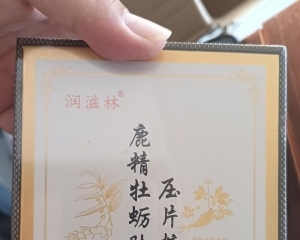 润滋林®
鹿精牡蛎
压片